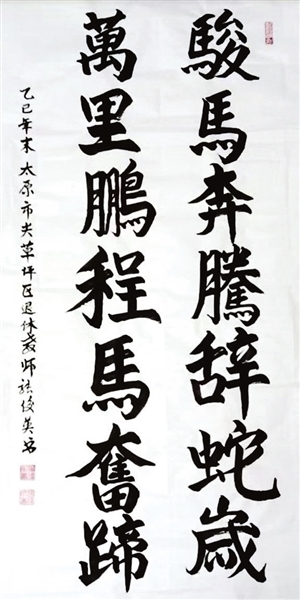 駿馬奔騰辭蛇歲
萬里鵬程馬奮蹄
乙巳年末太原市尖草坪区退休教师張俊英书